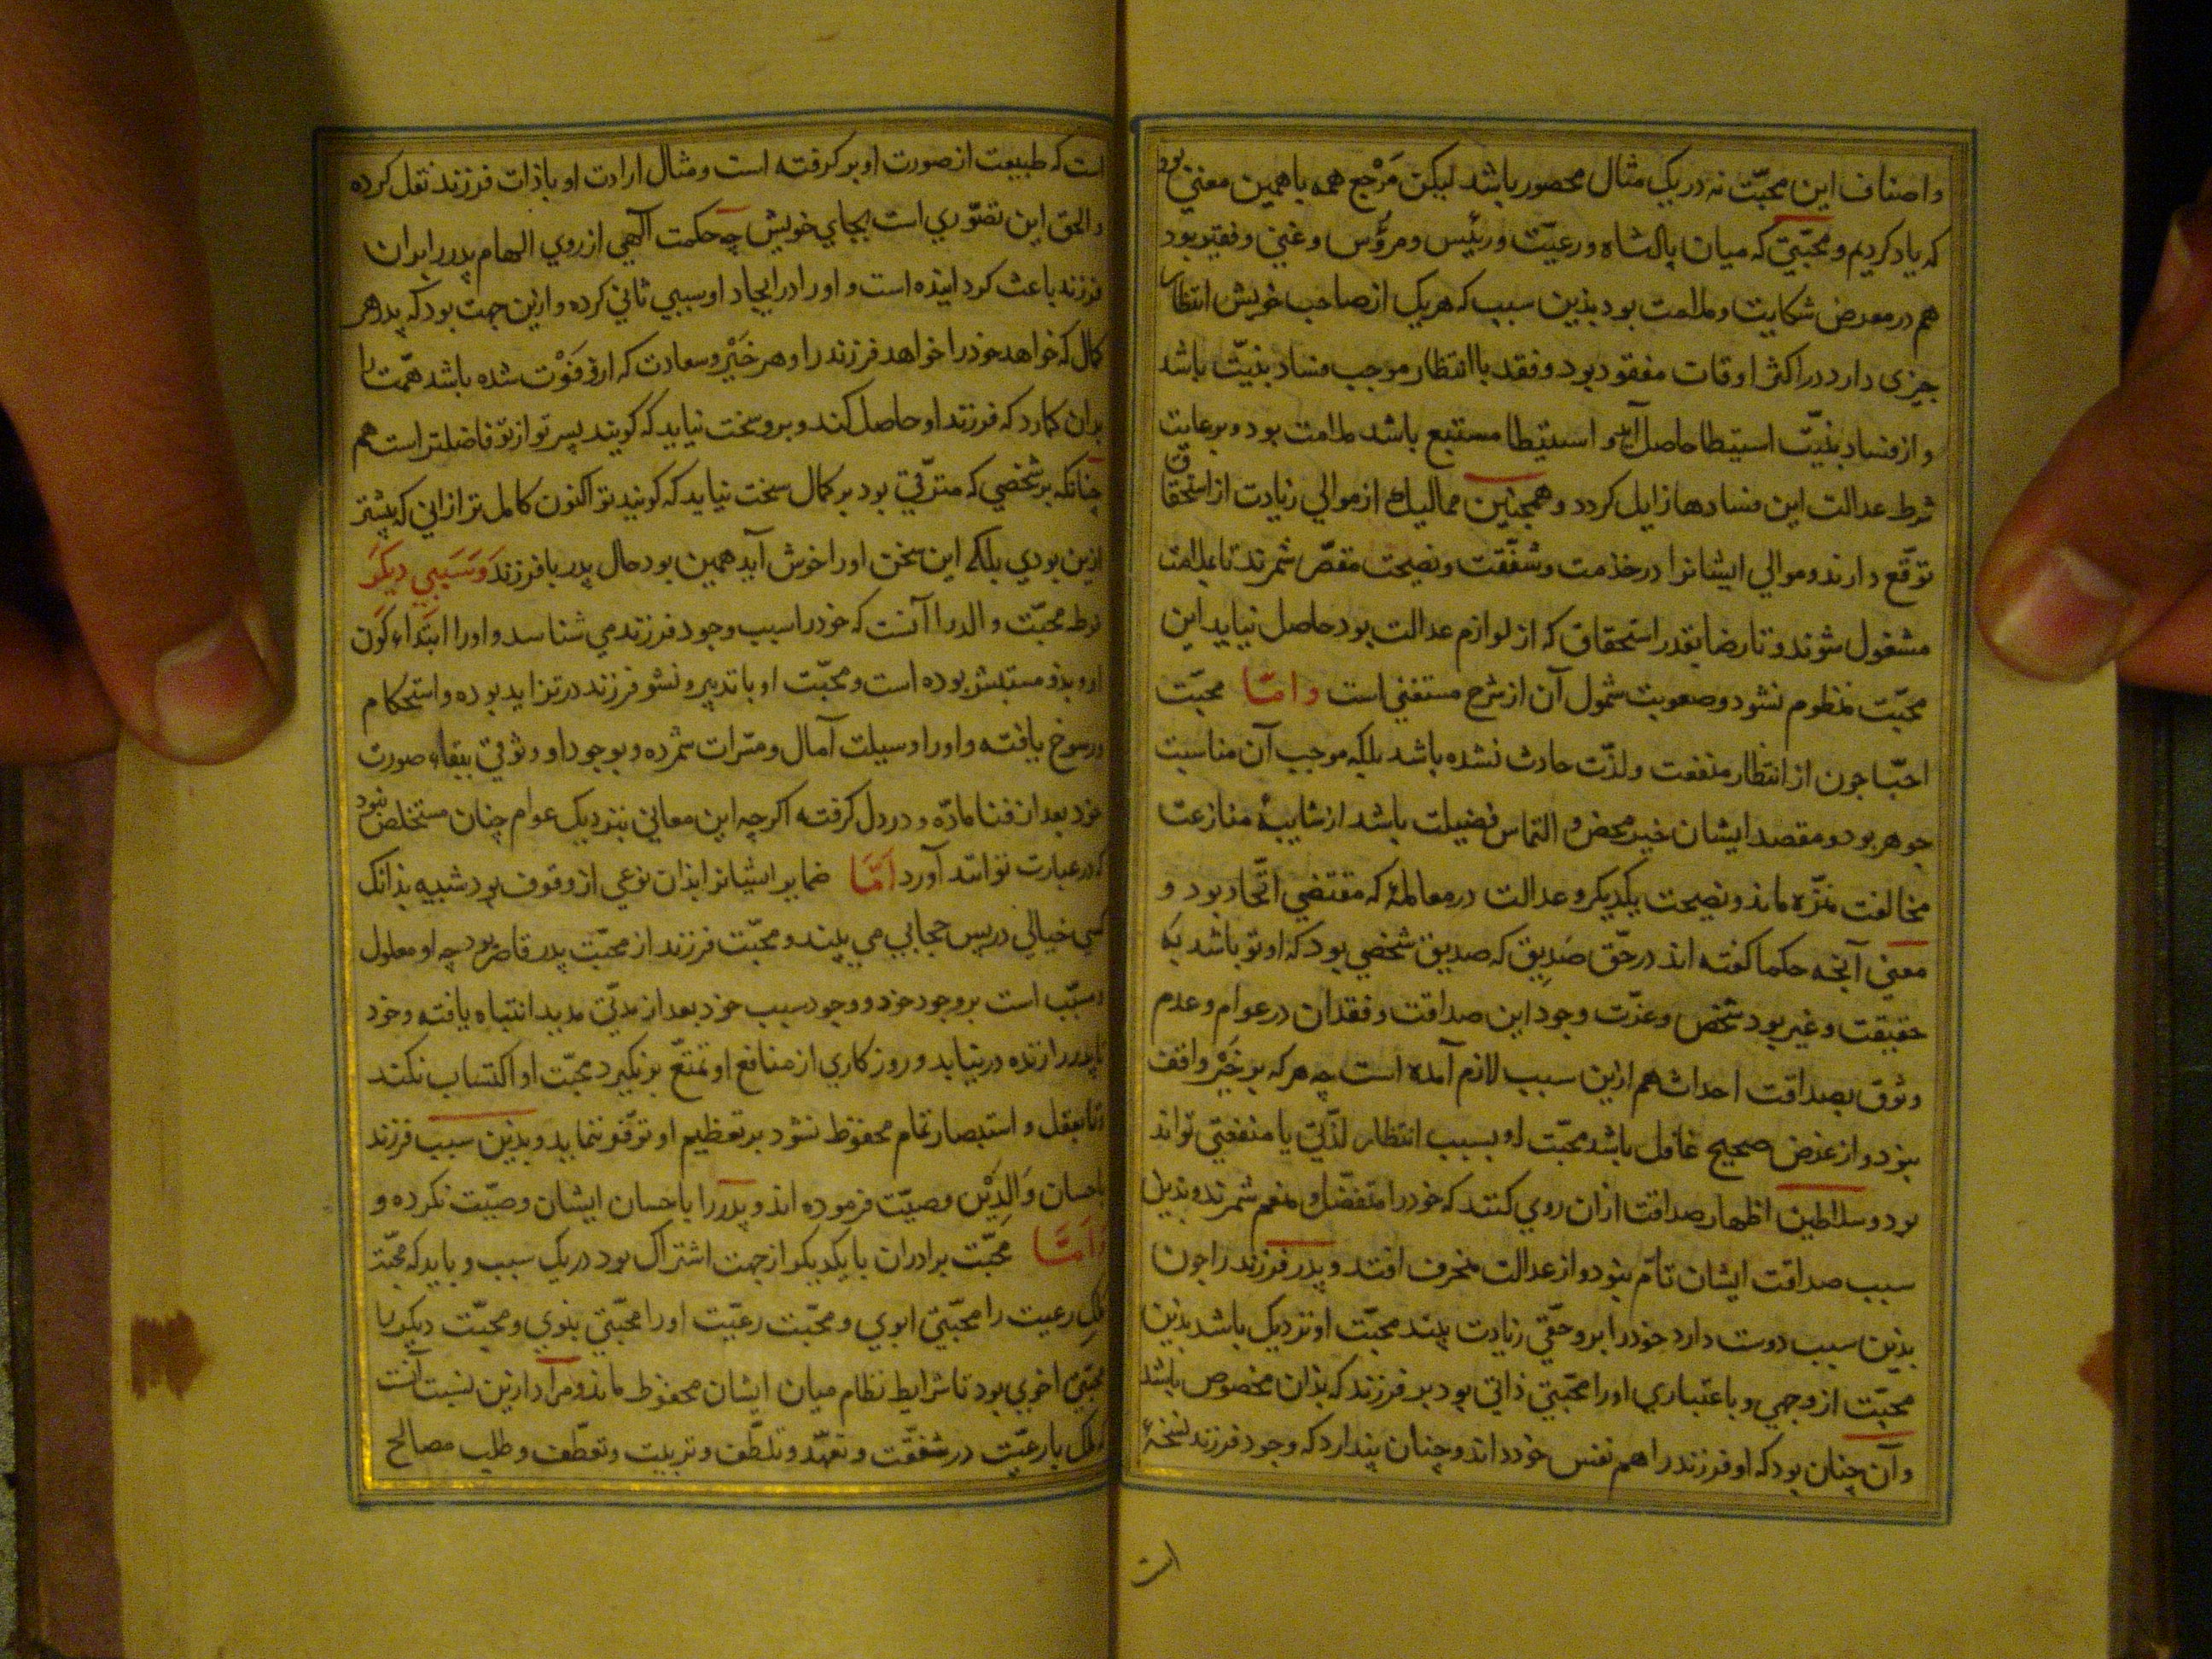 واصناف این محبّت نه در یک مثال محصور باشد لیکن مَرْجع همه با همین معنی بود
که یاد کردیم و محبّتی که میان پادشاه و رعیّت و رئیس و مرؤس و غنی و فقیر بود
هم در معرض شکایت و ملامت بود بذین سبب که هر یک از صاحب خویش انتظار
چیزی دارد در اکثر اوقات مفقود بود و فقد با انتظار موجب فساد بنیّت باشد
و از فساد بنیّت استبطا حاصل آید و استبطا مستتبع باشد ملامت بود و برعایت
شرط عدالت این فسادها زایل کردد و همچنین ممالیک هم از موالی زیادت از استحقاق
توقّع دارند و موالی ایشانرا در خذمت و شفقت و نصیحت مقصّر شمرند تا بملامت
مشغول شوند و تا رضا بقدر استحقاق که از لوازم عدالت بود حاصل نیاید این
محبّت منظوم نشود و صعوبت شمول آن از شرح مستغنی است و امّا محبّت
احبّا چون از انتظار منفعت و لذّت حادث نشده باشد بلکه موجب آن مناسبت
جوهر بود و مقصد ایشان خیر محض و التماس فضیلت باشد از شایبهٔ منازعت
مخالفت منزّه ماند و نصیحت یکدیکر و عدالت در معاملهٔ که مقتضی اتّحاد بود و
معنی آنچه حکما کفته اند در حقّ صَدِیق که صدیق شخصی بود که او تو باشد به
حقیقت و غیر بود شخص و عزّت وجود این صداقت و فقدان در عوام و عدم
وثوق بصداقت احداث هم ازین سبب لازم آمده است چه هر که بر خَیْر واقف
نبود و از غرض صحیح غافل باشد محبّت او بسبب انتظار لذّتی یا منفعتی تواند
بود و سلاطین اظهار صداقت ازان روی کنند که خود را متفضّل و منعم شمرند و بذین
سبب صداقت ایشان تامّ نبود و از عدالت منحرف افتد و پدر فرزند را چون
بذین سبب دوست دارد خود را برو حقّی زیادت بیند محبّت او نزدیک باشد بذین
محبّت از وجهی و باعتباری او را محبّتی ذاتی بود بر فرزند که بذان مخصوص باشد
و آن چنان بود که او فرزند را هم نفس خود داند و چنان پندارد که وجود فرزند نسخهٔ
است
است که طبیعت از صورت او بر کرفته است و مثال از ذات او با ذات فرزند نقل کرده
و الحق این تصوّری است بجای خویش چه حکمت آلهی از روی الهام پدر را بر آن
فرزند باعث کردانیذه است و او را در ایجاد او سببی ثانی کرده و ازین جهت بود که پدر هر
کمال که خواهد خود را خواهد فرزند را و هر خَیْر و سعادت که ازو فَوْت شده باشد همّت را
بدان کمارد که فرزند او حاصل کند و برو سخت نیاید که کویند پسر تو از تو فاضلتر است هم
چنانکه بر شخصی که مترقّی بود بر کمال سخت نیاید که کویند تو اکنون کامل تر از انی که پیشتر
ازین بودی بلکه این سخن او را خوش آید همین بود حال پدر با فرزند وَ سَبَبی دیکَر
فرط محبّت والد را آنست که خود را سبب وجود فرزند می شناسد و او را ابتداء کون
ازو بذو مستبشر بوده است و محبّت او با تدبیر و نشو فرزند در تزاید بوده و استحکام
و رسوخ یافته و او را وسیلت آمال و مسّرات شمرده و بوجود او وثوقی ببقاء صورت
خود بعد از فنا مادّه در دل کرفته اکرچه این معانی بنزدیک عوام چنان مستخلص نبود
که در عبارت توانند آورد امّا ضمایر ایشانرا بذان نوعی از وقوف بود شبیه بذانک
کسی خیالی در پس حجابی می بیند و محبّت فرزند از محبّت پدر قاصر بود چه او معلول
و مسبّب است بر وجود خود و وجود سبب خود بعد از مدّتی مدید انتباه یافته و خود
تا پدر را زنده در نیابد و روزکاری از منافع او تمتّع بر نکیرد محبّت او اکتساب نکند
و تا بتعقل و استبصار تمام محفوظ نشود بر تعظیم او توفّر ننماید و بذین سبب فرزند
باحسان وَالِدَیْن وصیّت فرموده اند و پدر را باحسان ایشان وصیّت نکرده و
وَ اَمّا محبّت برادران با یکدیکر از جهت اشتراک بود در یک سبب و باید که محبّت
ملک رعیت را محبّتی ابوی و محبّت رعیّت او را محبّتی بنوی و محبّت دیکر را
محبّتی اخوی بود تا شرایط نظام میان ایشان محفوظ ماند و مراد ازین نسبت آنست
که ملک با رعیّت در شفقّت و تعهّد و تلطّف و تربیت و تعطّف و طلب مصالح